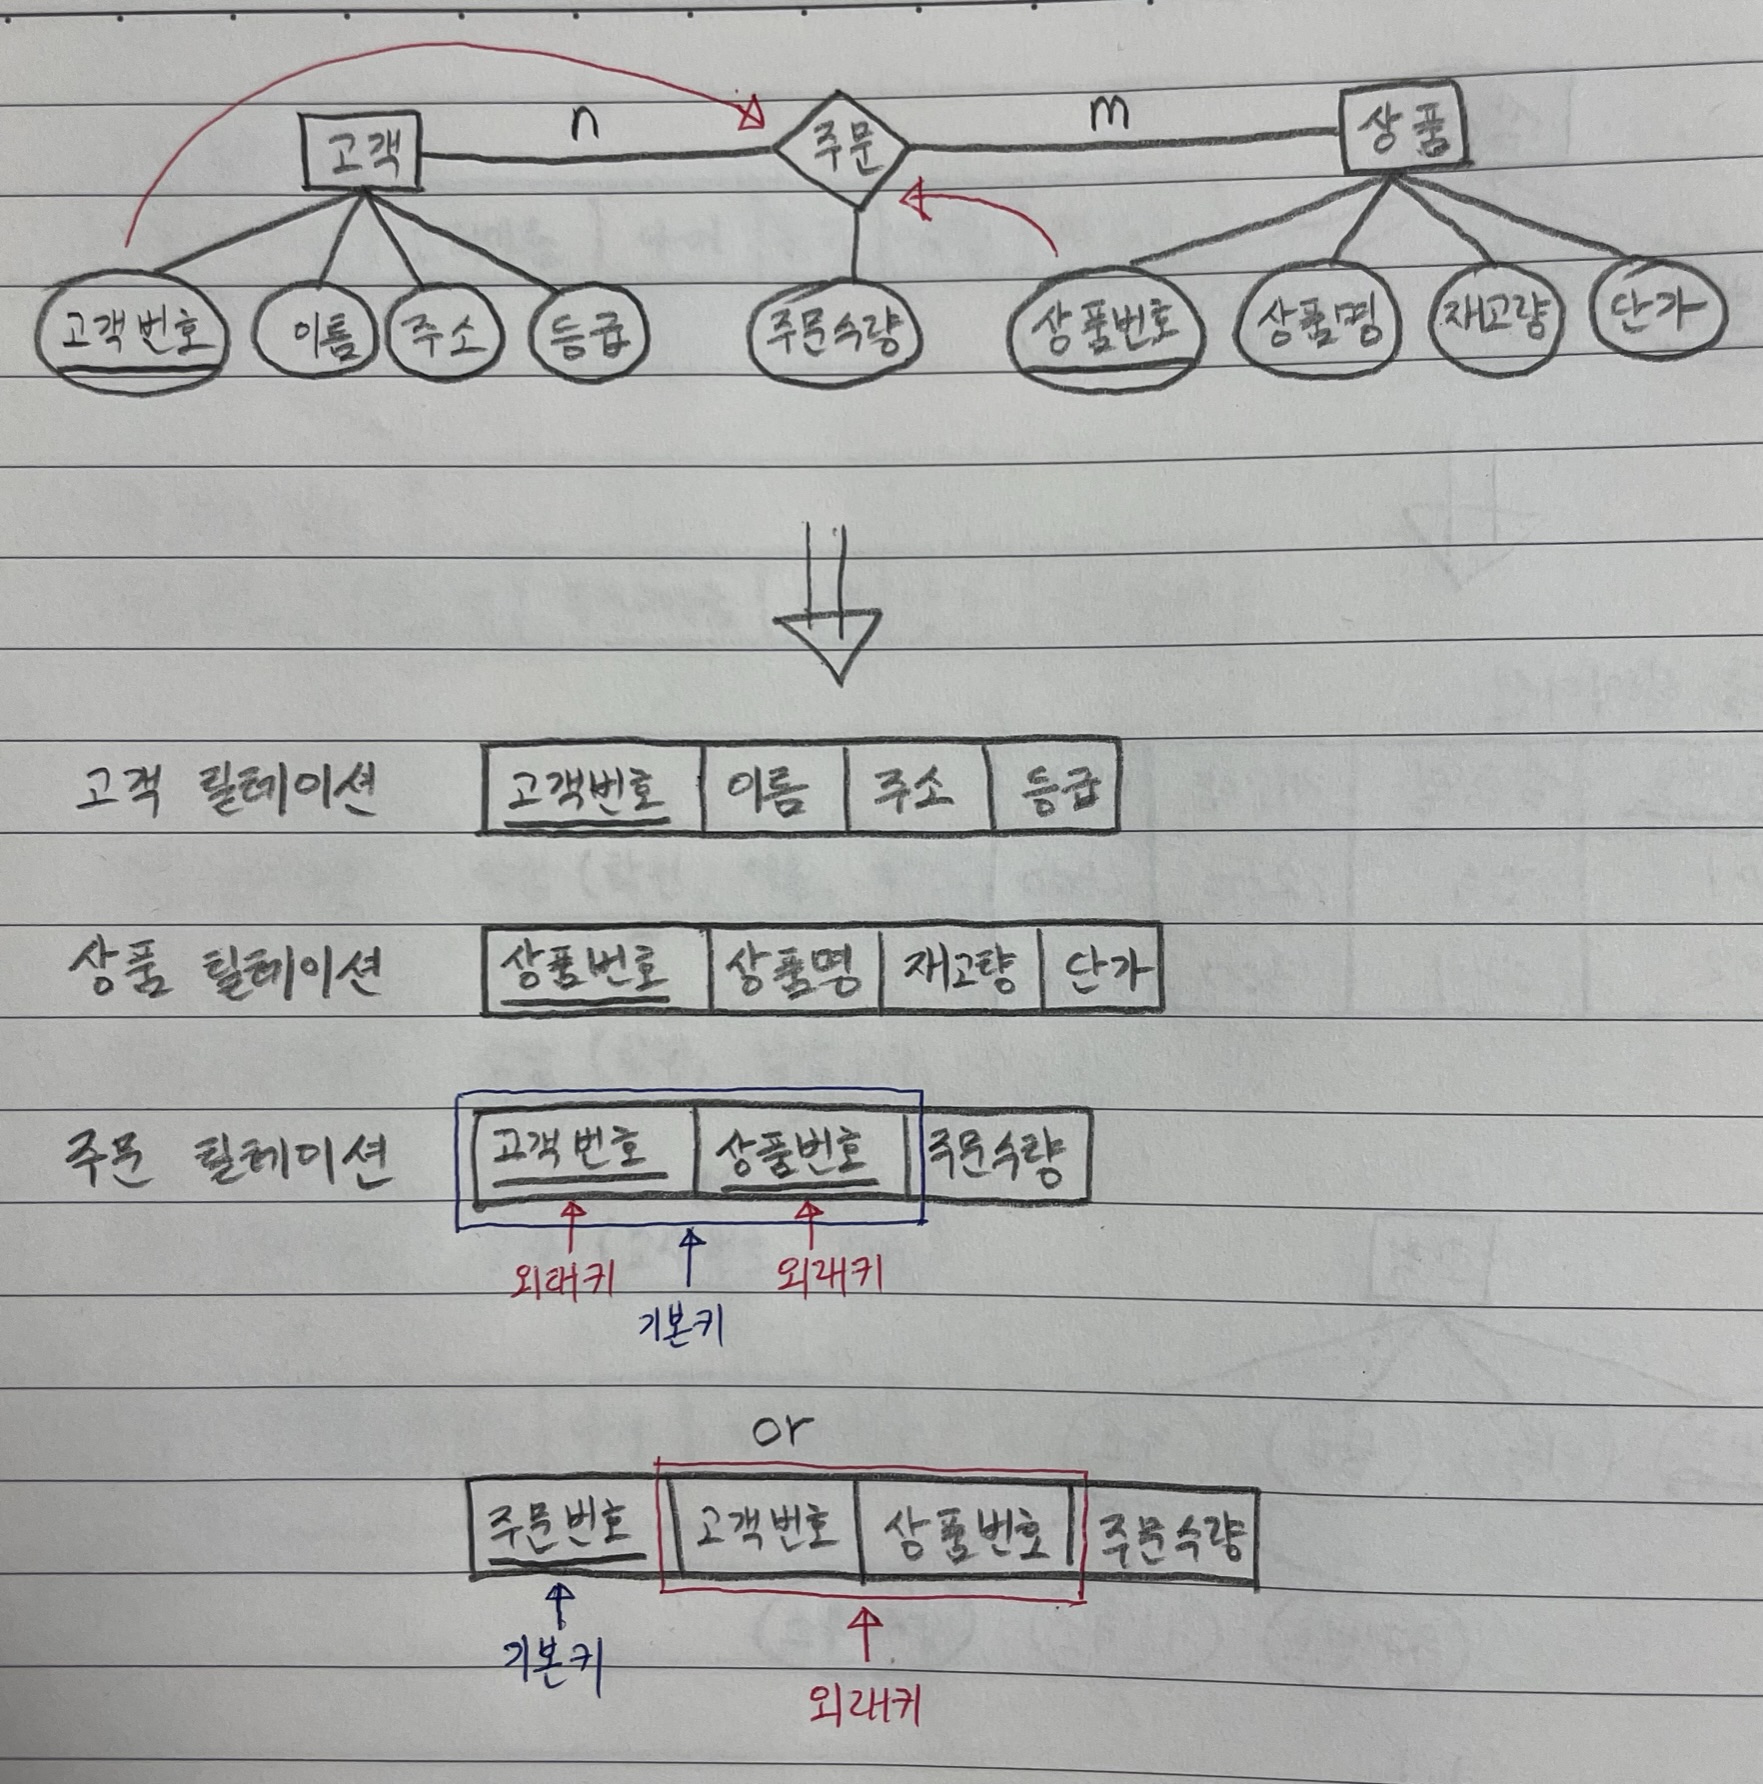 n
m
고객
주문
상품
고객번호 이름 주소 등급 주문수량 상품번호 상품명 재고량 단가
고객 릴레이션
고객번호 이름 주소 등급
상품 릴레이션
상품번호 상품명 재고량 단가
주문 릴레이션
고객번호 상품번호 주문수량
외래키 외래키
기본키
or
주문번호 고객번호 상품번호 주문수량
기본키
외래키